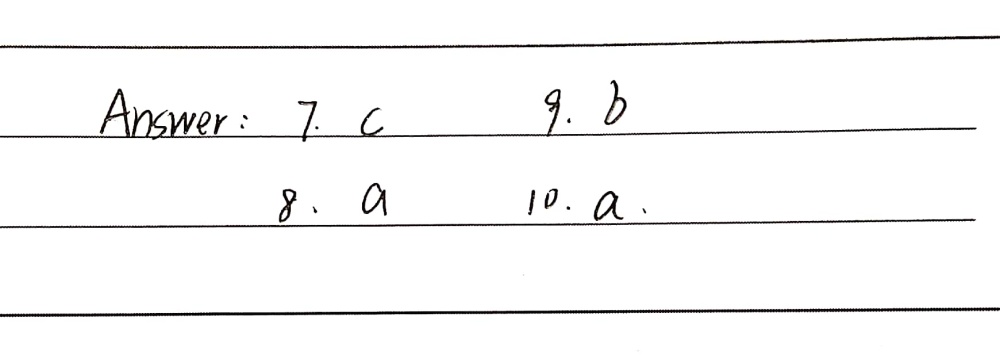 Answer: 7. c 9. b
8. a 10. a.